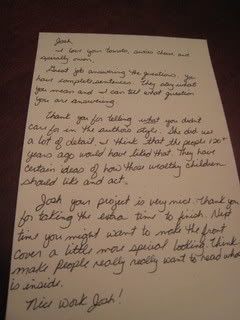 Josh
I love your tomato, swiss cheese and
specially onion.
Great job answering the questions. You
have complete sentences. They say what
you mean and I can tell what question
you are answering
Thank you for telling what you didn't
care for in the author's style. She did use
a lot of detail. I think that the people 120+
years ago would have liked that. They have
certain ideas of how those wealthy children
should like and act.
Josh your project is very nice. Thank you
for taking the extra time to finish. Next
time you might want to make the front
cover a little more special looking. Think
make people really really want to read what
is inside.
Nice Work Josh!